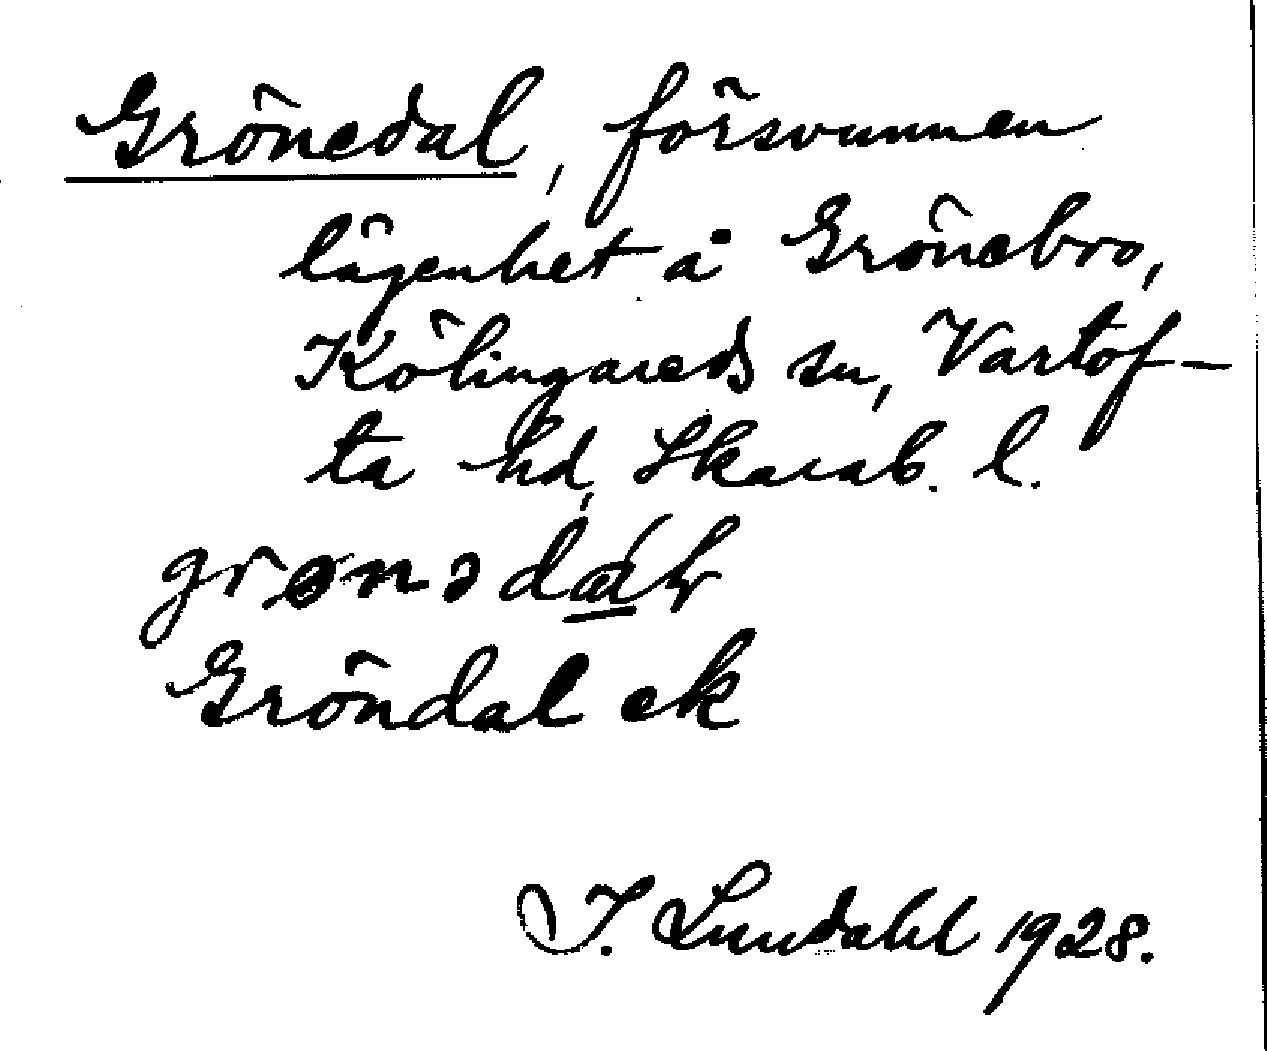 Grönedal, försvunnen
lägenhet å Grönebro,
Kölingareds sn, Vartof-
ta hd, Skarab. l.
Gröndal ek
I. Lundahl 1928.